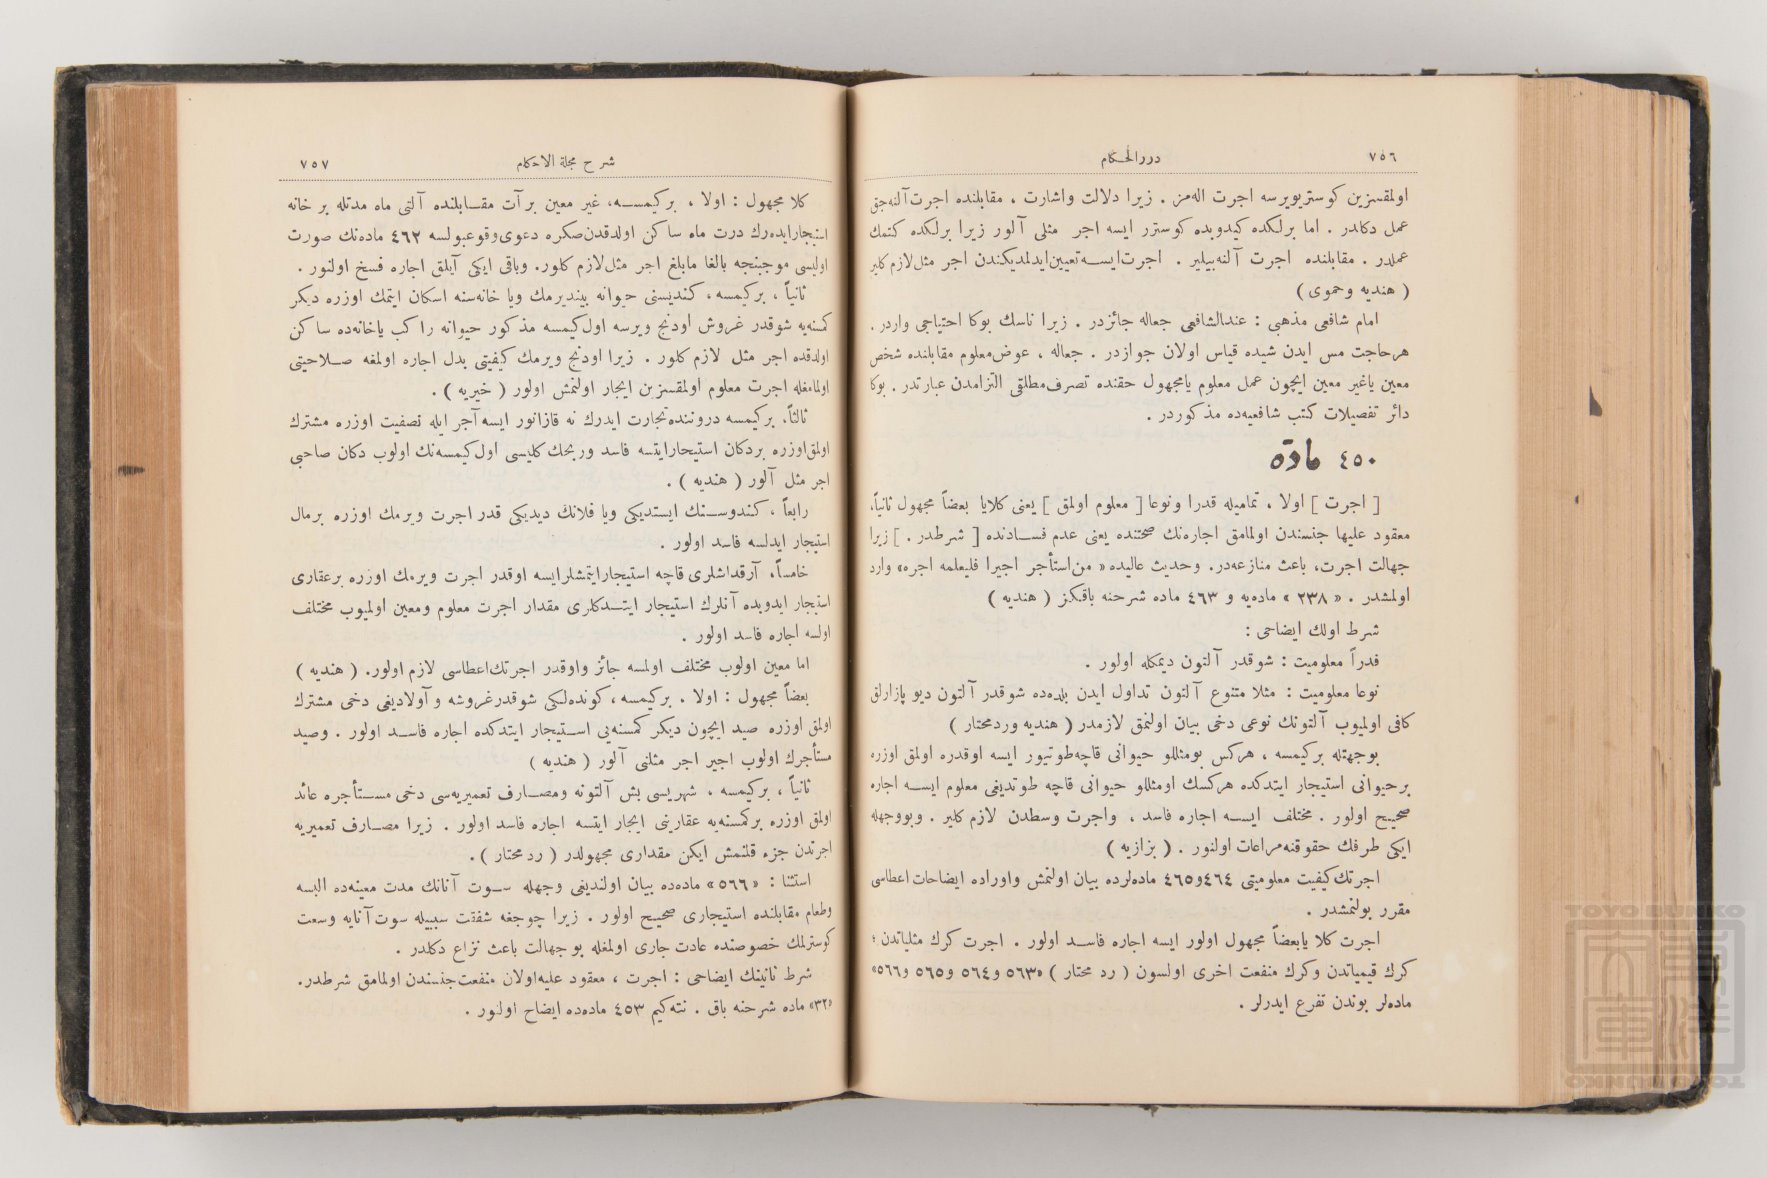 ٧٥٦
دررالحكام
اولمقسزين كوستريويرسه اجرت اله‌مز . زيرا دلالت واشارت ، مقابلنده اجرت آلنه‌جق
عمل دكلدر . اما برلكده كيدوبده كوسترر ايسه اجر مثلى آلور زيرا برلكده كتمك
عملدر . مقابلنده اجرت آلنه‌بيلير . اجرت ايسه تعيين ايدلمديكندن اجر مثل لازم كلير
( هنديه وحموى )
امام شافعى مذهبى : عندالشافعى جعاله جائزدر . زيرا ناسك بوكا احتياجى واردر .
هر حاجت مس ايدن شيده قياس اولان جوازدر . جعاله ، عوض معلوم مقابلنده شخص
معين ياغير معين ايچون عمل معلوم يامجهول حقنده تصرف مطلقى التزامدن عبارتدر . بوكا
دائر تفصيلات كتب شافعيه‌ده مذكوردر .
٤٥٠ مادة
[ اجرت ] اولا ، تماميله قدرا ونوعا [ معلوم اولمق ] يعنى كلايا بعضاً مجهول ثانياً،
معقود عليها جنسندن اولمامق اجاره‌نك صحتنده يعنى عدم فسادنده [ شرطدر . ] زيرا
جهالت اجرت، باعث منازعه‌در. وحديث عاليده « من استأجر اجيرا فليعلمه اجره» وارد
اولمشدر . « ٢٣٨ » ماده‌يه و ٤٦٣ ماده شرحنه باقكز ( هنديه )
شرط اولك ايضاحى :
قدراً معلوميت : شوقدر آلتون ديمكله اولور .
نوعا معلوميت : مثلا متنوع آلتون تداول ايدن بلده‌ده شوقدر آلتون ديو پازارلق
كافى اولميوب آلتونك نوعى دخى بيان اولنمق لازمدر ( هنديه وردمحتار )
بوجهتله بركيمسه ، هركس بومثللو حيوانى قاچه طوتيور ايسه اوقدره اولمق اوزره
برحيوانى استيجار ايتدكده هركسك اومثللو حيوانى قاچه طوتديغى معلوم ايسه اجاره
صحيح اولور . مختلف ايسه اجاره فاسد ، واجرت وسطدن لازم كلير . وبووجهله
ايكى طرفك حقوقنه مراعات اولنور . ( بزازيه )
اجرتك كيفيت معلوميتى ٤٦٤ و٤٦٥ ماده‌لرده بيان اولنمش واوراده ايضاحات اعطاسى
مقرر بولنمشدر .
اجرت كلا يابعضاً مجهول اولور ايسه اجاره فاسد اولور . اجرت كرك مثلياتدن ؛
كرك قيمياتدن وكرك منفعت اخرى اولسون ( رد محتار ) «٥٦٣ و ٥٦٤ و ٥٦٥ و٥٦٦»
ماده‌لر بوندن تفرع ايدرلر .
شرح مجلة الاحكام
٧٥٧
كلا مجهول : اولا ، بركيمسه، غير معين برآت مقابلنده آلتى ماه مدتله بر خانه
استيجار ايده‌رك درت ماه ساكن اولدقدن صكره دعوى وقوعبولسه ٤٦٢ ماده‌نك صورت
اوليسى موجبنجه بالغا مابلغ اجر مثل لازم كلور. وباقى ايكى آيلق اجاره فسخ اولنور .
ثانياً ، بركيمسه ، كنديسنى حيوانه بينديرمك ويا خانه‌سنه اسكان ايتمك اوزره ديكر
كمسنه‌يه شوقدر غروش اودنج ويرسه اول كيمسه مذكور حيوانه راكب ياخانه‌ده ساكن
اولدقده اجر مثل لازم كلور . زيرا اودنج ويرمك كيفيتى بدل اجاره اولمغه صلاحيتى
اولمامغله اجرت معلوم اولمقسزين ايجار اولنمش اولور ( خيريه ) .
ثالثاً، بركيمسه دروننده تجارت ايدرك نه قازانور ايسه آجر ايله تصفيت اوزره مشترك
اولمق اوزره بردكان استيجار ايتسه فاسد وربحك كليسى اول كيمسه‌نك اولوب دكان صاحبى
اجر مثل آلور ( هنديه ) .
رابعاً ، كندوسنك ايستديكى ويا فلانك ديديكى قدر اجرت ويرمك اوزره برمال
استيجار ايدلسه فاسد اولور .
خامساً، آرقداشلرى قاچه استيجار ايتمشلر ايسه اوقدر اجرت ويرمك اوزره برعقارى
استيجار ايدوبده آنلرك استيجار ايتدكلرى مقدار اجرت معلوم ومعين اولميوب مختلف
اولسه اجاره فاسد اولور .
اما معين اولوب مختلف اولمسه جائز واوقدر اجرتك اعطاسى لازم اولور. ( هنديه )
بعضاً مجهول : اولا ، بركيمسه ، كونده‌لكى شوقدر غروشه و آولاديغى دخى مشترك
اولمق اوزره صيد ايچون ديكر كمسنه‌يى استيجار ايتدكده اجاره فاسد اولور . وصيد
مستأجرك اولوب اجير اجر مثلنى آلور ( هنديه )
ثانياً ، بركيمسه ، شهريسى بش آلتونه ومصارف تعميريه‌سى دخى مستأجره عائد
اولمق اوزره بركمسنه‌يه عقارينى ايجار ايتسه اجاره فاسد اولور . زيرا مصارف تعميريه
اجرتدن جزء قلنمش ايكن مقدارى مجهولدر ( رد محتار ) .
استثنا : «٥٦٦» ماده‌ده بيان اولنديغى وجهله سوت آنانك مدت معينه‌ده البسه
وطعام مقابلنده استيجارى صحيح اولور . زيرا چوجغه شفقت سببيله سوت آنايه وسعت
كوسترلمك خصوصنده عادت جارى اولمغله بو جهالت باعث نزاع دكلدر .
شرط ثانينك ايضاحى : اجرت ، معقود عليه اولان منفعت جنسندن اولمامق شرطدر.
«٣٢» ماده شرحنه باق . نته‌كيم ٤٥٣ ماده‌ده ايضاح اولنور .
TOYO BUNKO
東洋文庫
TOYO BUNKO